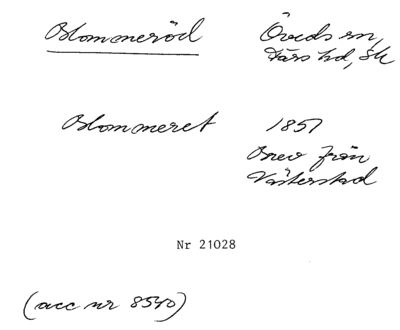 Blommeröd Öveds sn,
Färs hd, Sk
Blommeret 1851
Brev från
Västerstad
Nr 21028
(acc nr 8540)